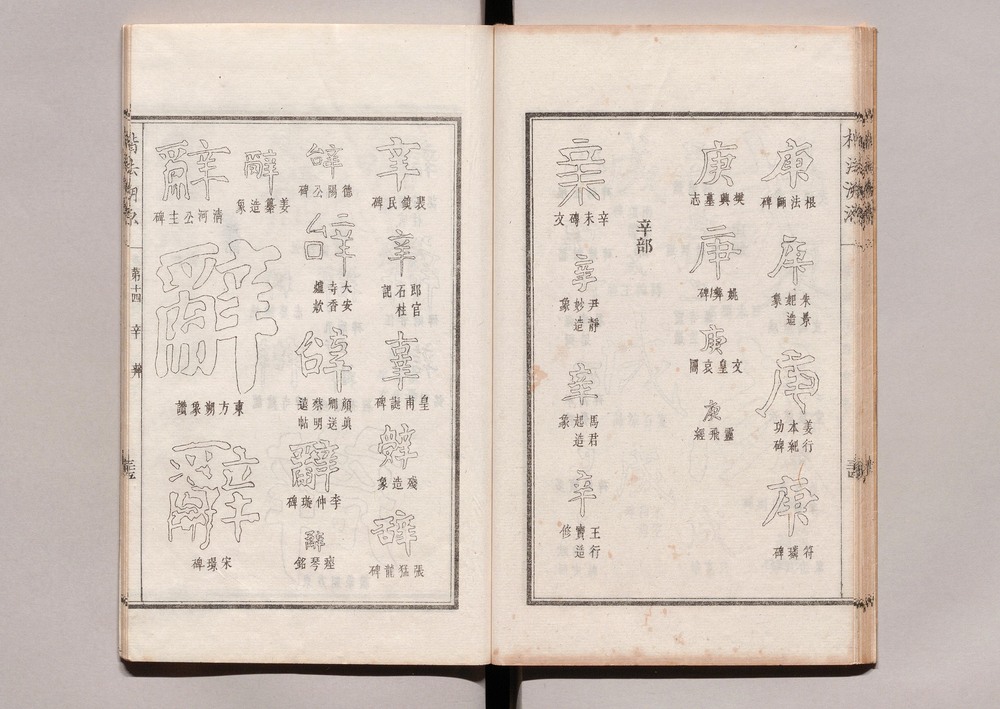 楷法溯源
庚
根法師碑
庚
朱景
造
象
庚
姜行
本紀
功碑
庚
符璘碑
庚
樊興墓志
庚
姚彝碑
庚
文皇哀冊
庚
靈飛經
辛部
辛未
辛未磚文
辛
尹靜
妙造
象
辛
馬君
起造
象
辛
王行
寶造
修
辛
裴鏡民碑
辛
郎官
石柱
記
辜
皇甫誕碑
辤
殘造象
辭
張猛龍碑
辝
德陽公碑
辝
大安
寺香
爐款
辝
顏眞
卿送
蔡明
遠帖
辭
李仲璇碑
辭
瘞琴銘
辭
姜纂造象
辭
清河公主碑
辭
東方朔象讚
辭
宋璟碑
楷法溯源
第十四
辛